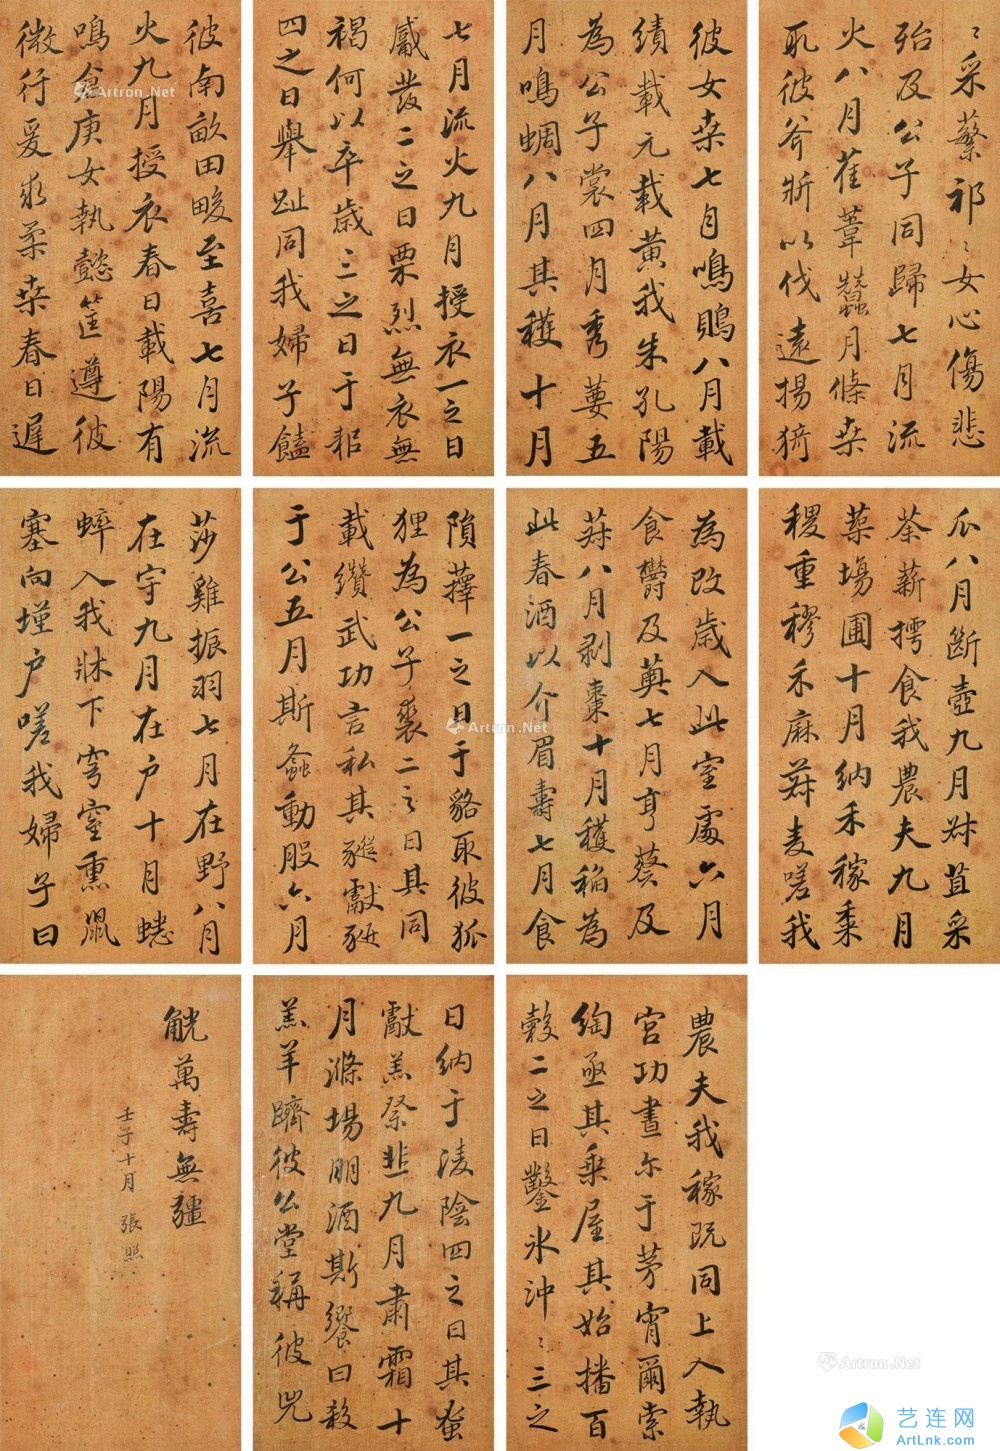 七月流火九月授衣一之日
觱發二之日栗烈無衣無
褐何以卒歲三之日于耜
四之日舉趾同我婦子饁
彼南畝田畯至喜七月流
火九月授衣春日載陽有
鳴倉庚女執懿筐遵彼
微行爰求柔桑春日遲
〻采蘩祁〻女心傷悲
殆及公子同歸七月流
火八月萑葦蠶月條桑
取彼斧斨以伐遠揚猗
彼女桑七月鳴鵙八月載
績載元載黃我朱孔陽
為公子裳四月秀葽五
月鳴蜩八月其穫十月
隕蘀一之日于貉取彼狐
狸為公子裘二之日其同
載纘武功言私其豵獻豜
于公五月斯螽動股六月
莎雞振羽七月在野八月
在宇九月在户十月蟋
蟀入我牀下穹窒熏鼠
塞向墐户嗟我婦子曰
為改歲入此室處六月
食鬱及薁七月亨葵及
菽八月剥棗十月穫稻為
此春酒以介眉壽七月食
瓜八月斷壺九月叔苴采
荼薪樗食我農夫九月
築場圃十月納禾稼黍
稷重穋禾麻菽麦嗟我
農夫我稼既同上入執
宮功晝尓于茅宵爾索
綯亟其乘屋其始播百
穀二之日鑿冰沖〻三之
日納于淩陰四之日其蚤
獻羔祭韭九月肅霜十
月滌場朋酒斯饗曰殺
羔羊躋彼公堂稱彼兕
觥萬壽無疆
壬子十月 張照
Artron.Net
Artron.Net
Artron.Net
Artron.Net
艺连网
ArtLnk.com